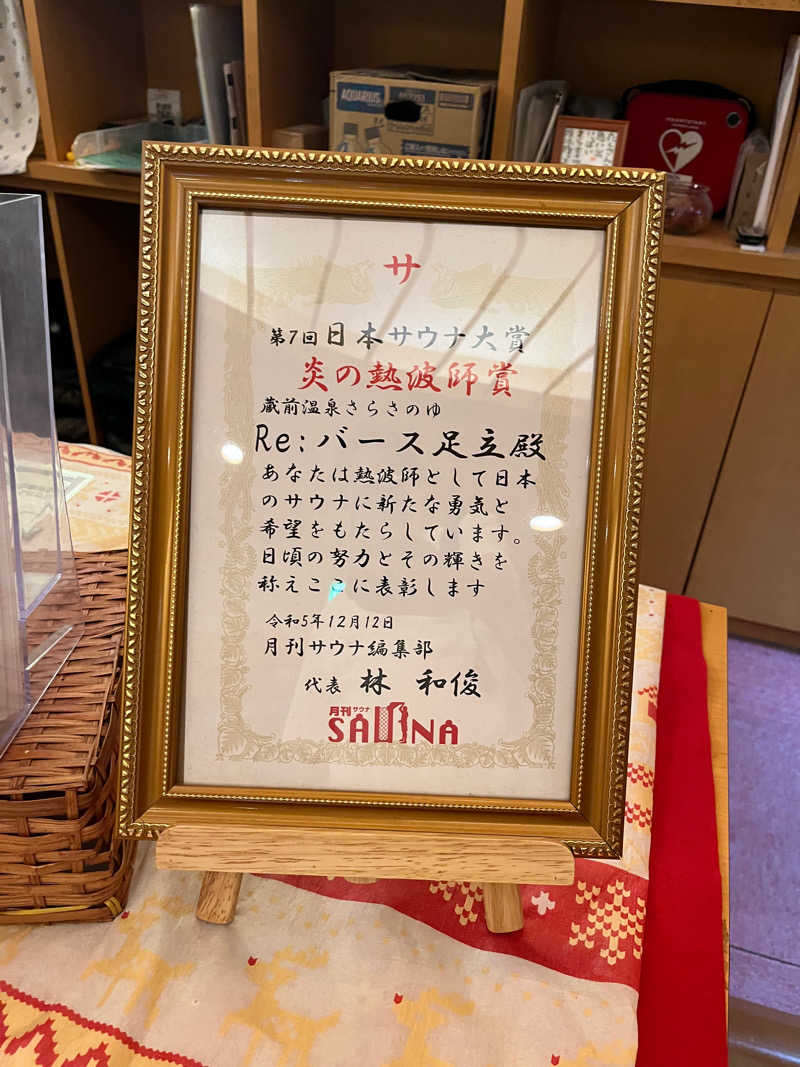 AQUARIUS
HEARTSTART
サ
第7回日本サウナ大賞
炎の熱波師賞
蔵前温泉さらさのゆ
Re:バース足立殿
あなたは熱波師として日本
のサウナに新たな勇気と
希望をもたらしています。
日頃の努力とその輝きを
称えここに表彰します
令和5年12月12日
月刊サウナ編集部
代表 林 和俊
月刊サウナ
SAUNA